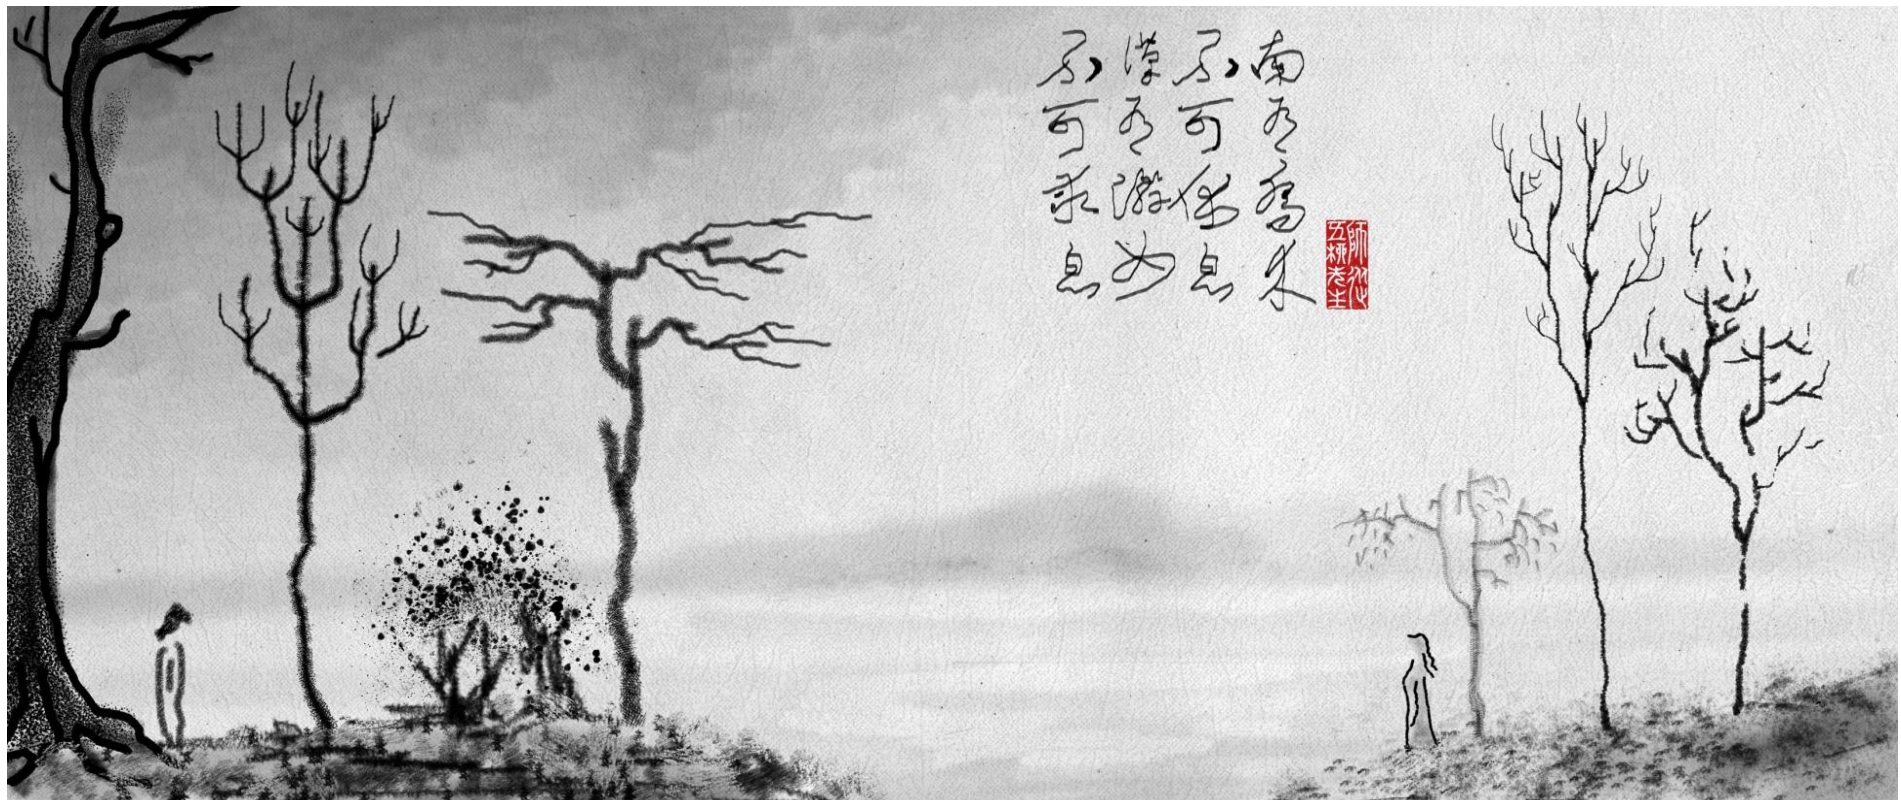 南有喬木
不可休息
漢有游女
不可求息
師從
五柳先生